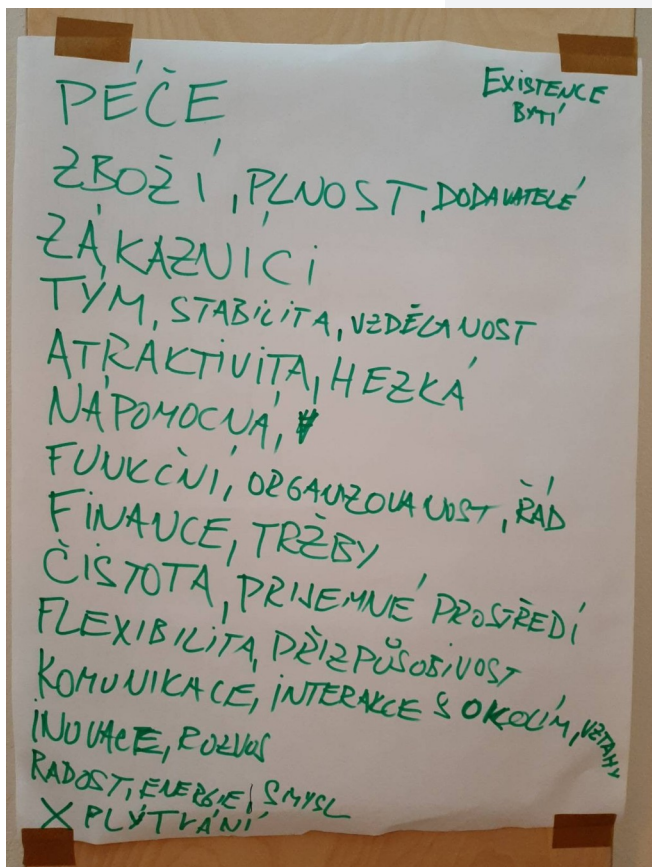 PÉČE
EXISTENCE
BYTÍ
ZBOŽÍ, PLNOST, DODAVATELÉ
ZÁKAZNÍCI
TÝM, STABILITA, VZDĚLANOST
ATRAKTIVITA, HEZKÁ
NÁPOMOCNÁ,
FUNKČNÍ, ORGANIZOVANOST, ŘÁD
FINANCE, TRŽBY
ČISTOTA, PŘIJEMNÉ PROSTŘEDÍ
FLEXIBILITA, PŘIZPŮSOBIVOST
KOMUNIKACE, INTERAKCE S OKOLÍM, VZTAHY
INOVACE, ROZVOJ
RADOST, ENERGIE, SMYSL
X PLÝTVÁNÍ